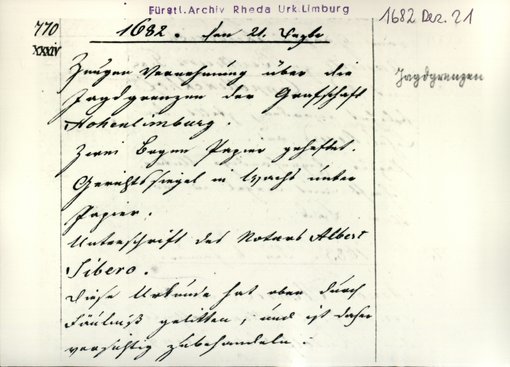 Fürstl. Archiv Rheda Urk. Limburg
1682 Dez. 21
770
XXXIV
1682. den 21. Decbr
Zeugen Vernehmung über die
Jagdgrenzen der Grafschaft
Hohenlimburg.
Zwei Bogen Papier geheftet.
Gerichtssiegel in Wachs unter
Papier.
Unterschrift des Notars Albert
Sibero.
Diese Urkunde hat oben durch
Fäulniß gelitten, und ist daher
vorsichtig zubehandeln.
Jagdgrenzen